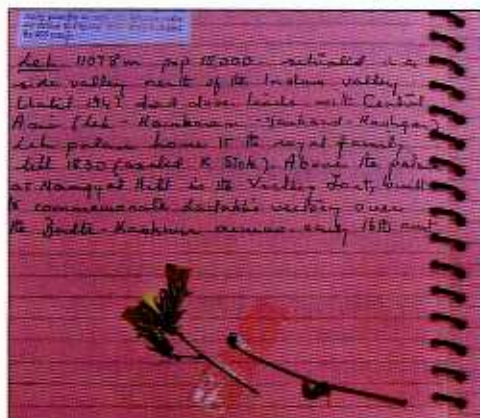 Leh 11078m pop 15,000 - situated in a
side valley north of the Indus valley
Until 1947 had close trade with Central
Asia (Leh - Karakoram -
Leh palace home to the royal family
till 1830 (exiled to Stok). Above the palace
at Namgyal Hill is the Victory Fort, built
to commemorate Ladakhs victory over
the Balti-Kashmir armies early 16th cent